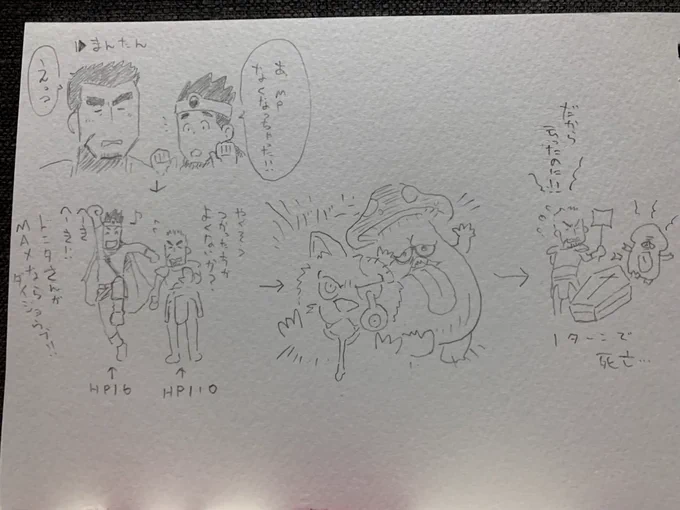 ▶まんたん
あ MP
なくなっちゃった…
えっっ
やくそう
つかった方が
よくないか?
へーき
へーき!!
トンヌラさんが
MAXなら
ダイジョーブ!!
HP16
HP110
だから
いったのに!!
1ターンで
死亡…